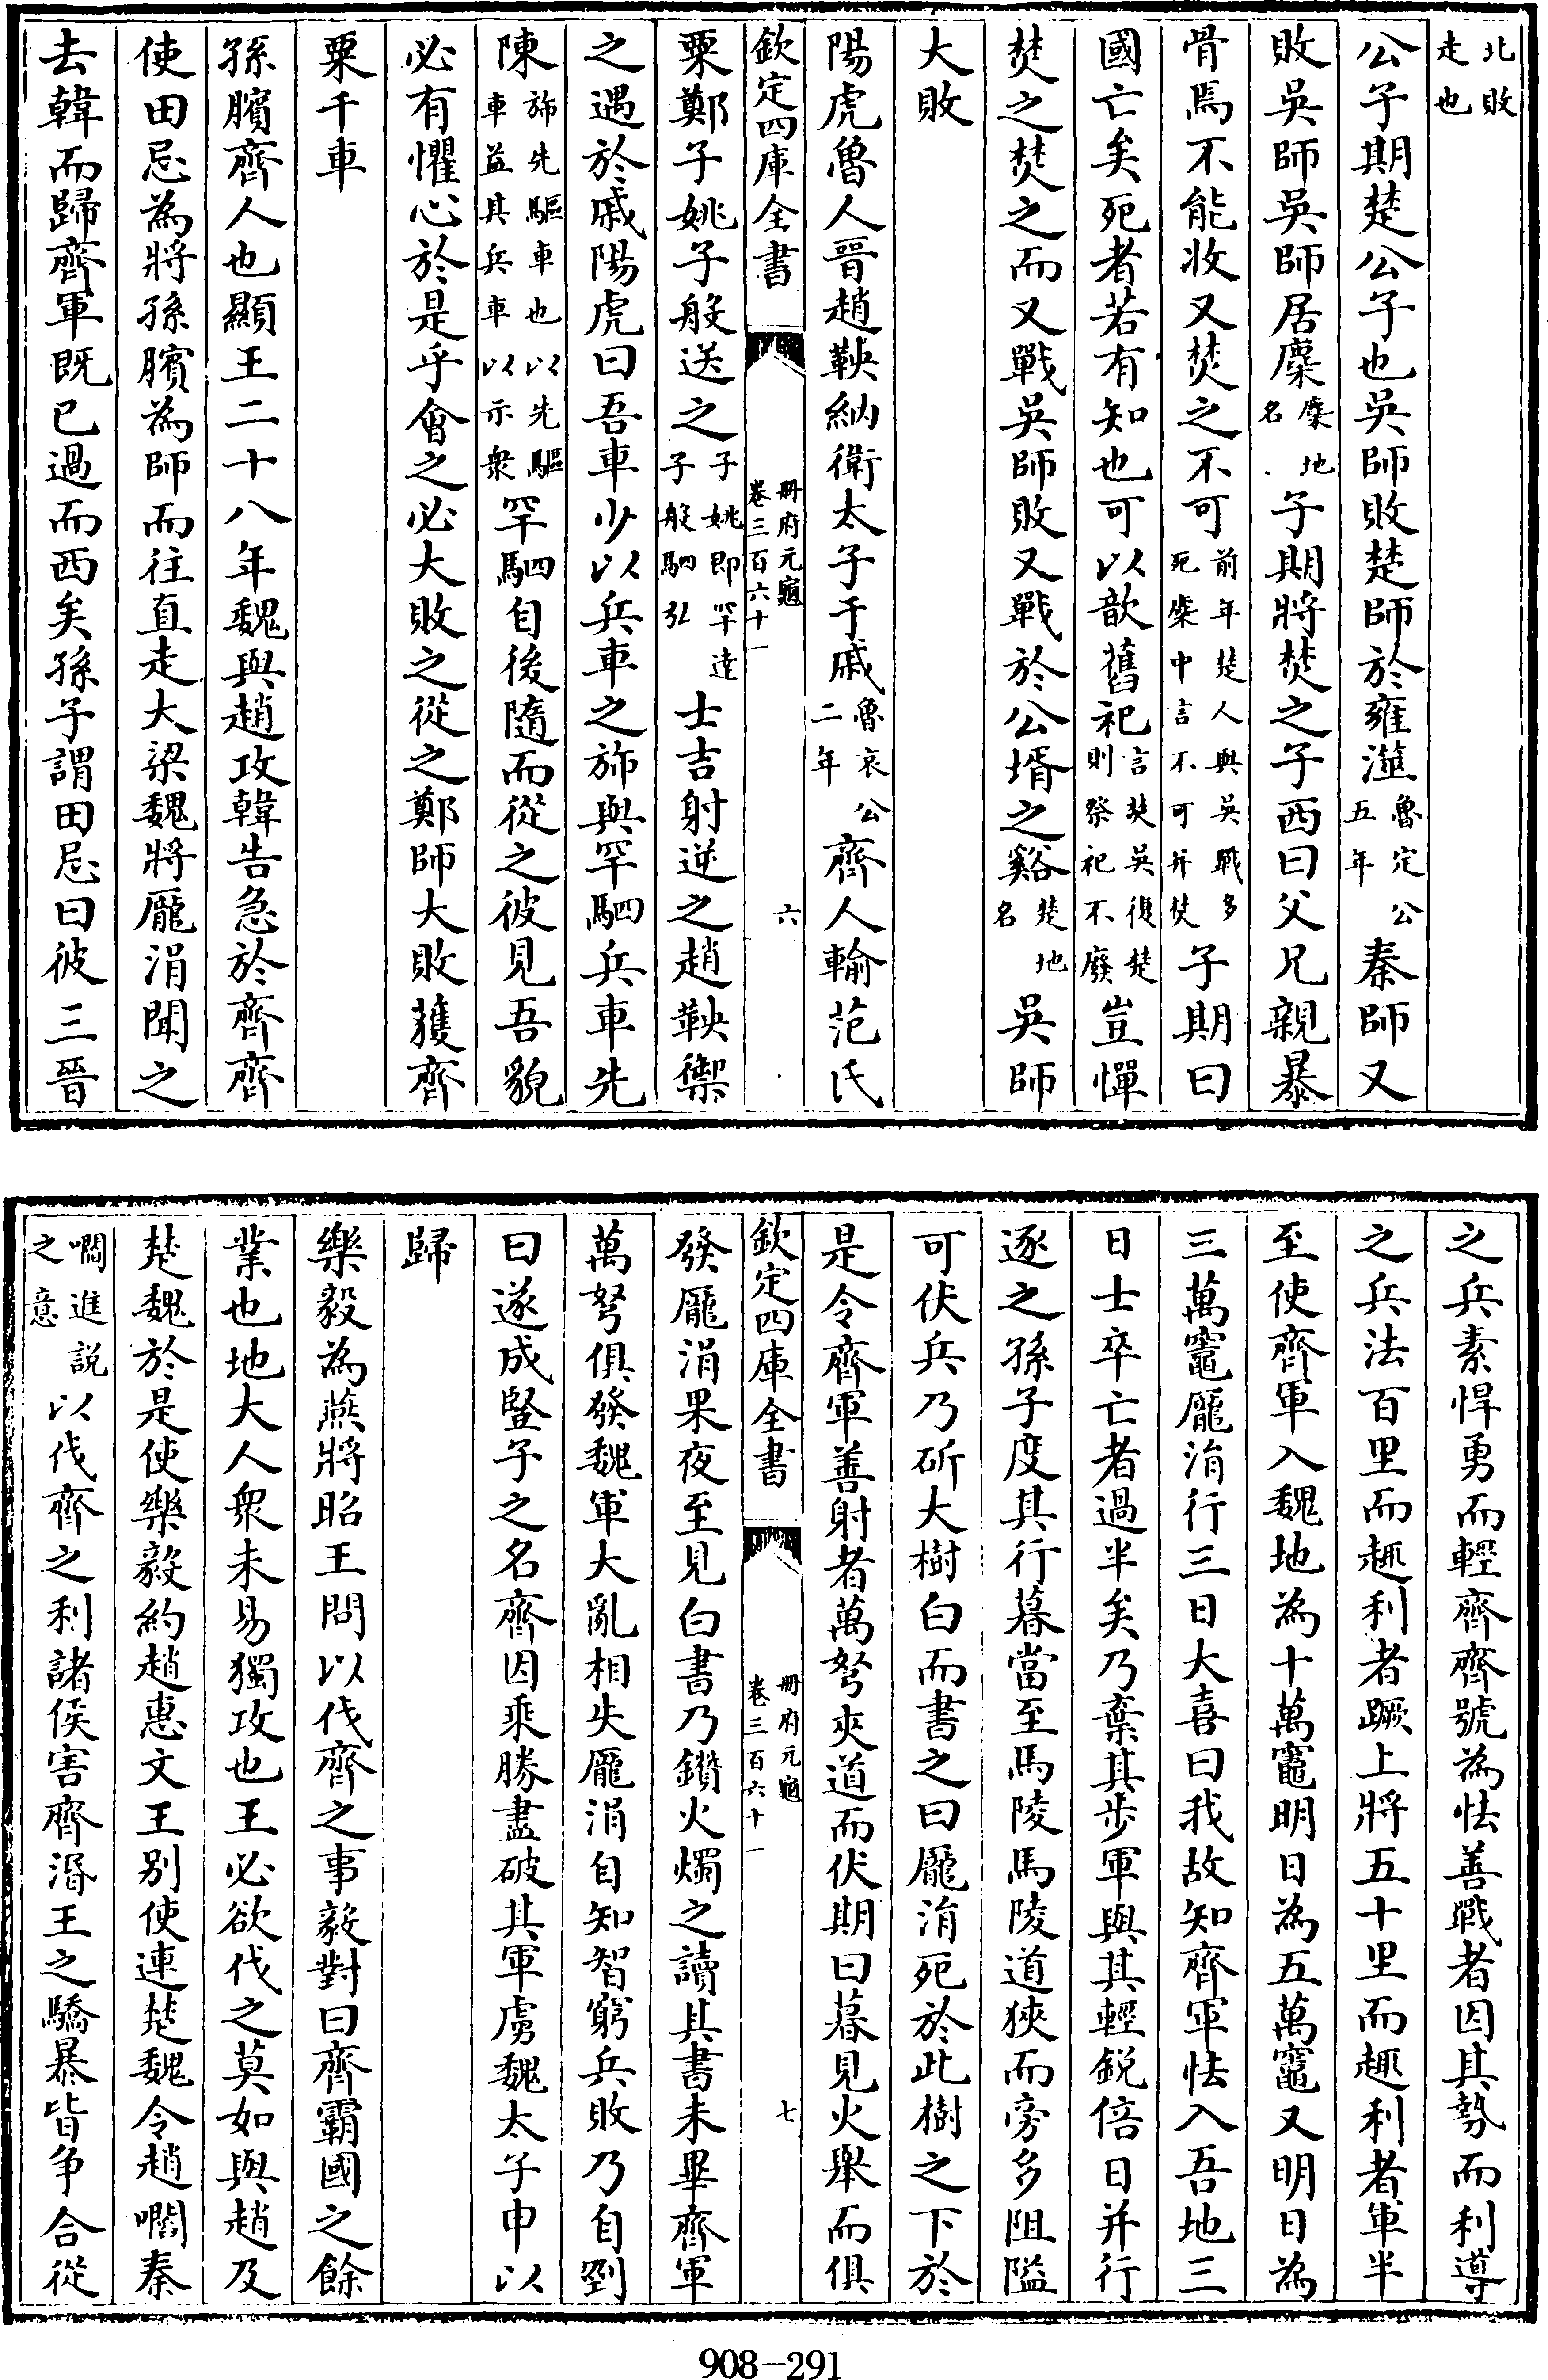 北敗走也
公子期楚公子也吳師敗楚師於雍澨魯定公五年秦師又
敗吳師吳師居麇麇地名子期將焚之子西曰父兄親暴
骨焉不能收又焚之不可前年楚人與吳戰多死麇中言不可并焚子期曰
國亡矣死者若有知也可以歆舊祀言焚吳復楚則祭祀不廢豈憚
焚之焚之而又戰吳師敗又戰於公壻之谿楚地名吳師
大敗
陽虎魯人晉趙鞅納衛太子于戚魯哀公二年齊人輸范氏
欽定四庫全書 冊府元龜卷三百六十一 六
粟鄭子姚子般送之子姚即罕達子般駟弘士吉射逆之趙鞅禦
之遇於戚陽虎曰吾車少以兵車之旆與罕駟兵車先
陳旆先驅車也以先驅車益其兵車以示衆罕駟自後隨而從之彼見吾貌
必有懼心於是乎會之必大敗之從之鄭師大敗獲齊
粟千車
孫臏齊人也顯王二十八年魏與趙攻韓告急於齊齊
使田忌為將孫臏為師而往直走大梁魏將龐涓聞之
去韓而歸齊軍既已過而西矣孫子謂田忌曰彼三晉
之兵素悍勇而輕齊齊號為怯善戰者因其勢而利導
之兵法百里而趣利者蹶上將五十里而趣利者軍半
至使齊軍入魏地為十萬竈明日為五萬竈又明日為
三萬竈龐涓行三日大喜曰我故知齊軍怯入吾地三
日士卒亡者過半矣乃棄其步軍與其輕銳倍日并行
逐之孫子度其行暮當至馬陵馬陵道狹而旁多阻隘
可伏兵乃斫大樹白而書之曰龐涓死於此樹之下於
是令齊軍善射者萬弩夾道而伏期曰暮見火舉而俱
欽定四庫全書 冊府元龜卷三百六十一 七
發龐涓果夜至見白書乃鑽火燭之讀其書未畢齊軍
萬弩俱發魏軍大亂相失龐涓自知智窮兵敗乃自剄
曰遂成豎子之名齊因乘勝盡破其軍虜魏太子申以
歸
樂毅為燕將昭王問以伐齊之事毅對曰齊霸國之餘
業也地大人衆未易獨攻也王必欲伐之莫如與趙及
楚魏於是使樂毅約趙惠文王別使連楚魏令趙嚪秦
嚪進說之意以伐齊之利諸侯害齊湣王之驕暴皆争合從
908-291